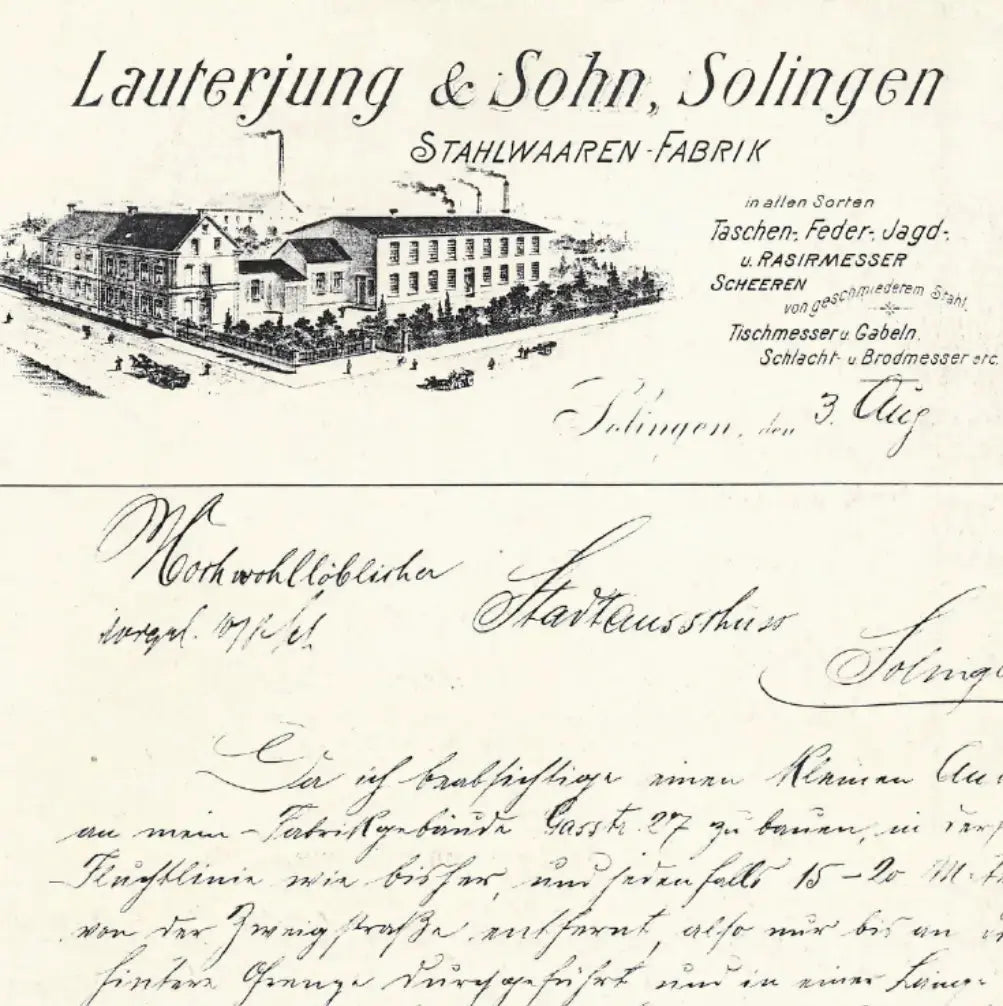 Lauterjung & Sohn, Solingen
STAHLWAAREN-FABRIK
in allen Sorten
Taschen-, Feder-, Jagd-,
u. RASIRMESSER
SCHEEREN
von geschmiedetem Stahl.
Tischmesser u. Gabeln.
Schlacht- u Brodmesser etc.
Solingen, den 3. Aug
Hochwohllöblicher
Stadtausschuss
Solinge
Da ich beabsichtige einen kleinen
an mein Fabrikgebäude Gasstr. 27 zu bauen, in
Fluchtlinie wie bisher, und jedenfalls 15-20 M.
von der Zweigstraße entfernt, also nur bis an
hintere Grenze durchgeführt und in einer Läng-